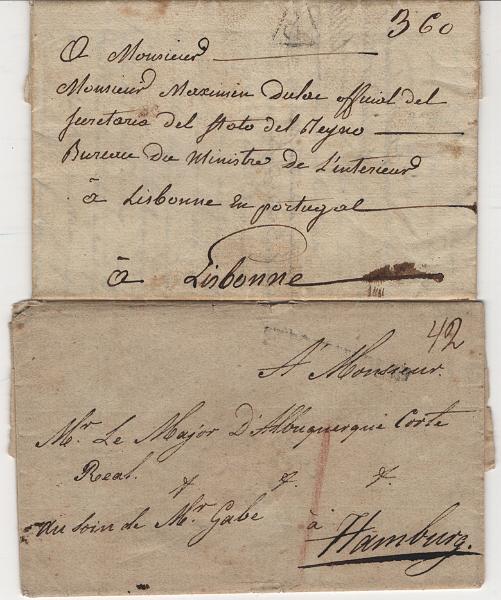 360
A Monsieur
Monsieur Maximien Dulac official del
secretaria del stato del Reyno
Bureau du Ministre de L'interieur
à Lisbonne en portugal
à Lisbonne
42
A Monsieur.
Mr. Le Major D'Albuquerque Corte
Real.
au soin de Mr. Gabe
à
Hamburg.